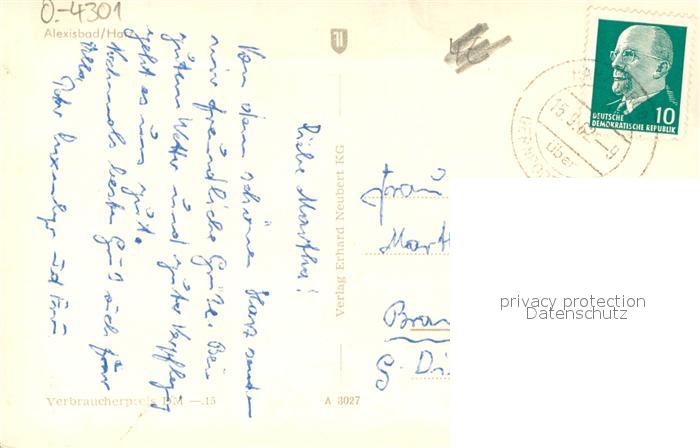 O-4301
Alexisbad/Ha
Liebe Martha!
Von dem schönen Harz senden
wir freundliche Grüße. Bei
gutem Wetter und guter Verpflegung
geht es uns gut.
Nochmals besten Gruß auch für
Alla
und Frau
Verlag Erhard Neubert KG
Verbraucherpreis DM —.15
A 3027
DEUTSCHE
DEMOKRATISCHE REPUBLIK
10
15.9.62-9
über
Frau
Marth
Bran
privacy protection
Datenschutz